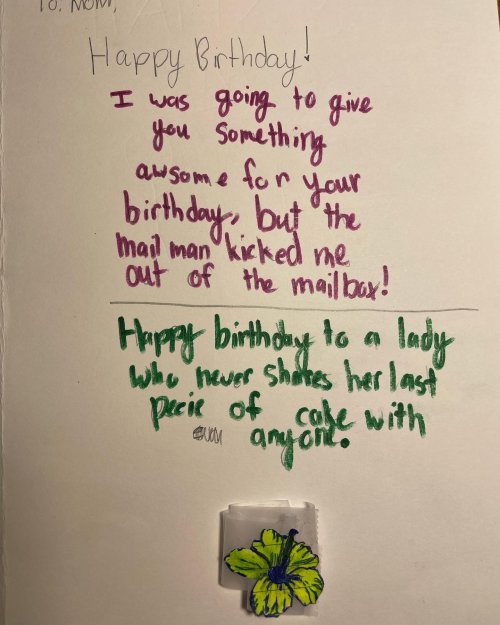 To: Mom,
Happy Birthday!
I was going to give
you something
awsome for your
birthday, but the
mail man kicked me
out of the mailbox!
Happy birthday to a lady
who never shares her last
pecie of cake with
anyone.